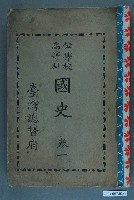 公學校
高等科
國史 卷一
臺灣總督府